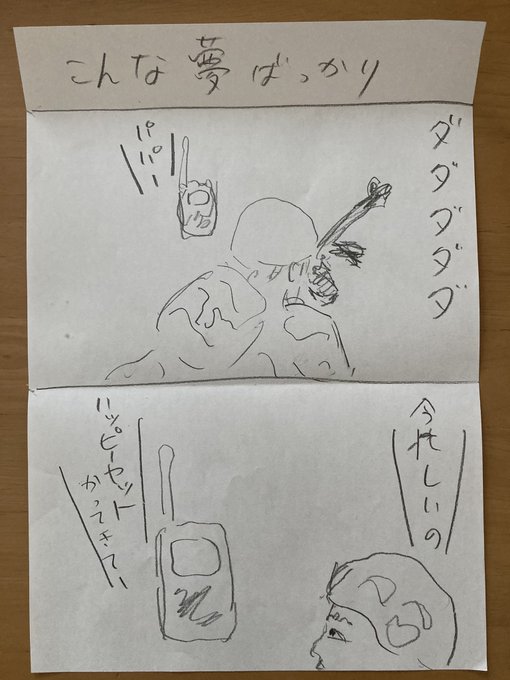 こんな夢ばっかり
ダダダダダ
パパー
今忙しいの
ハッピーセット
かってきてー